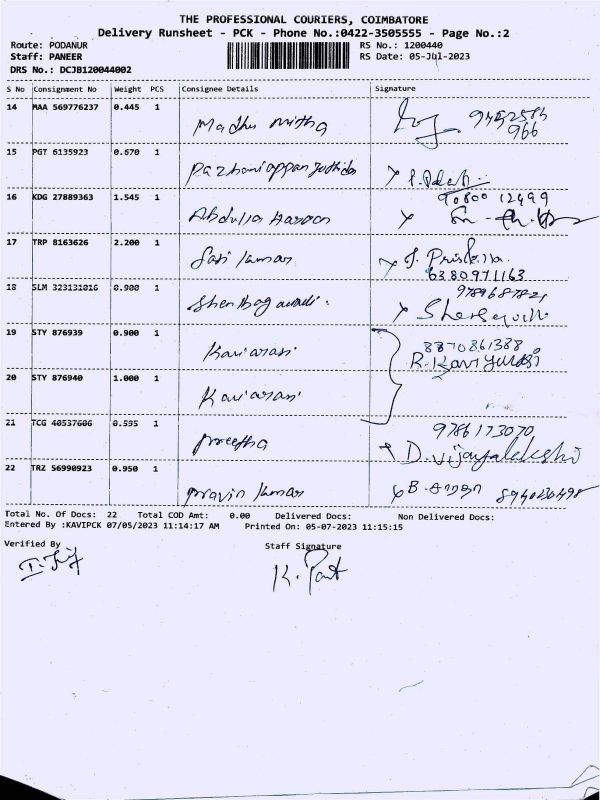 THE PROFESSIONAL COURIERS, COIMBATORE
Delivery Runsheet - PCK - Phone No.:0422-3505555 - Page No.:2
Route: PODANUR RS No.: 1200440
Staff: PANEER RS Date: 05-Jul-2023
DRS No.: DCJB120044002
S No Consignment No Weight PCS Consignee Details Signature
14 MAA 569776237 0.445 1 Madhu mitha
966
15 PGT 6135923 0.670 1
16 KDG 27889363 1.545 1 Abdulla Haroon 90800 12499
17 TRP 8163626 2.200 1 Sasi kumar J. Priskilla
6380971163
18 SLM 323131016 0.900 1 Shenbagavadi.
19 STY 876939 0.900 1 Kaviarasi 8870861388
20 STY 876940 1.000 1 Kaviarasi
21 TCG 40537606 0.595 1 Preetha 9786173070
D. Vijayalakshi
22 TRZ 56990923 0.950 1 Pravin kumar B.
Total No. Of Docs: 22 Total COD Amt: 0.00 Delivered Docs: Non Delivered Docs:
Entered By :KAVIPCK 07/05/2023 11:14:17 AM Printed On: 05-07-2023 11:15:15
Verified By Staff Signature